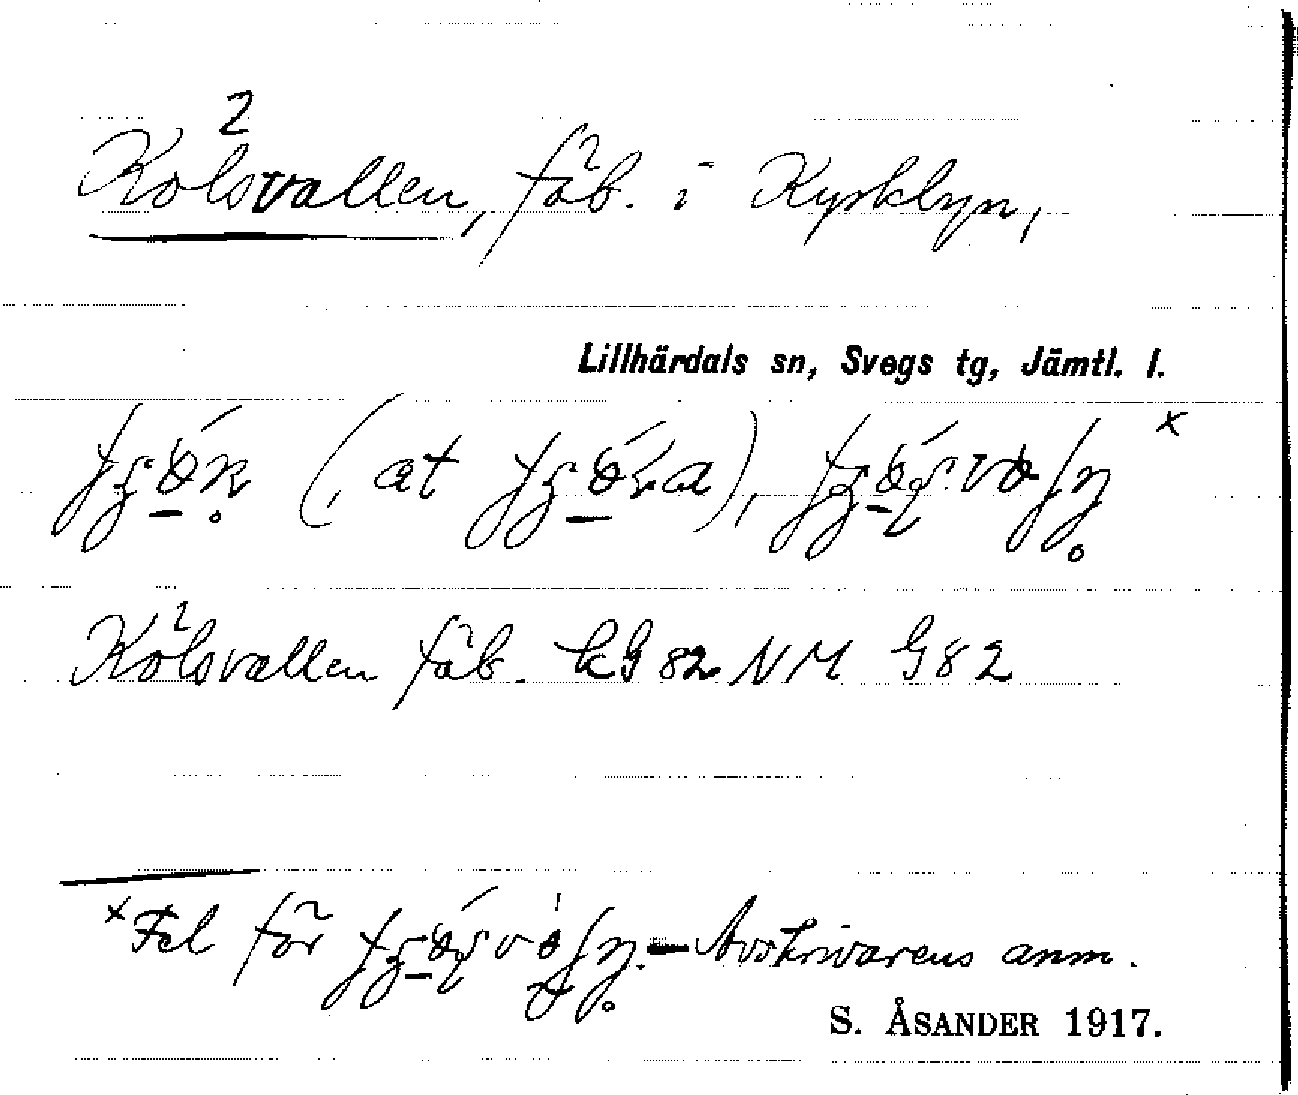 2
Kolsvallen, fäb. i Kyrkbyn,
Lillhärdals sn, Svegs tg, Jämtl. l.
(, at
x
Kolsvallen fäb. kG 82 NM G 82
x Fel för — Avskrivarens anm.
S. ÅSANDER 1917.